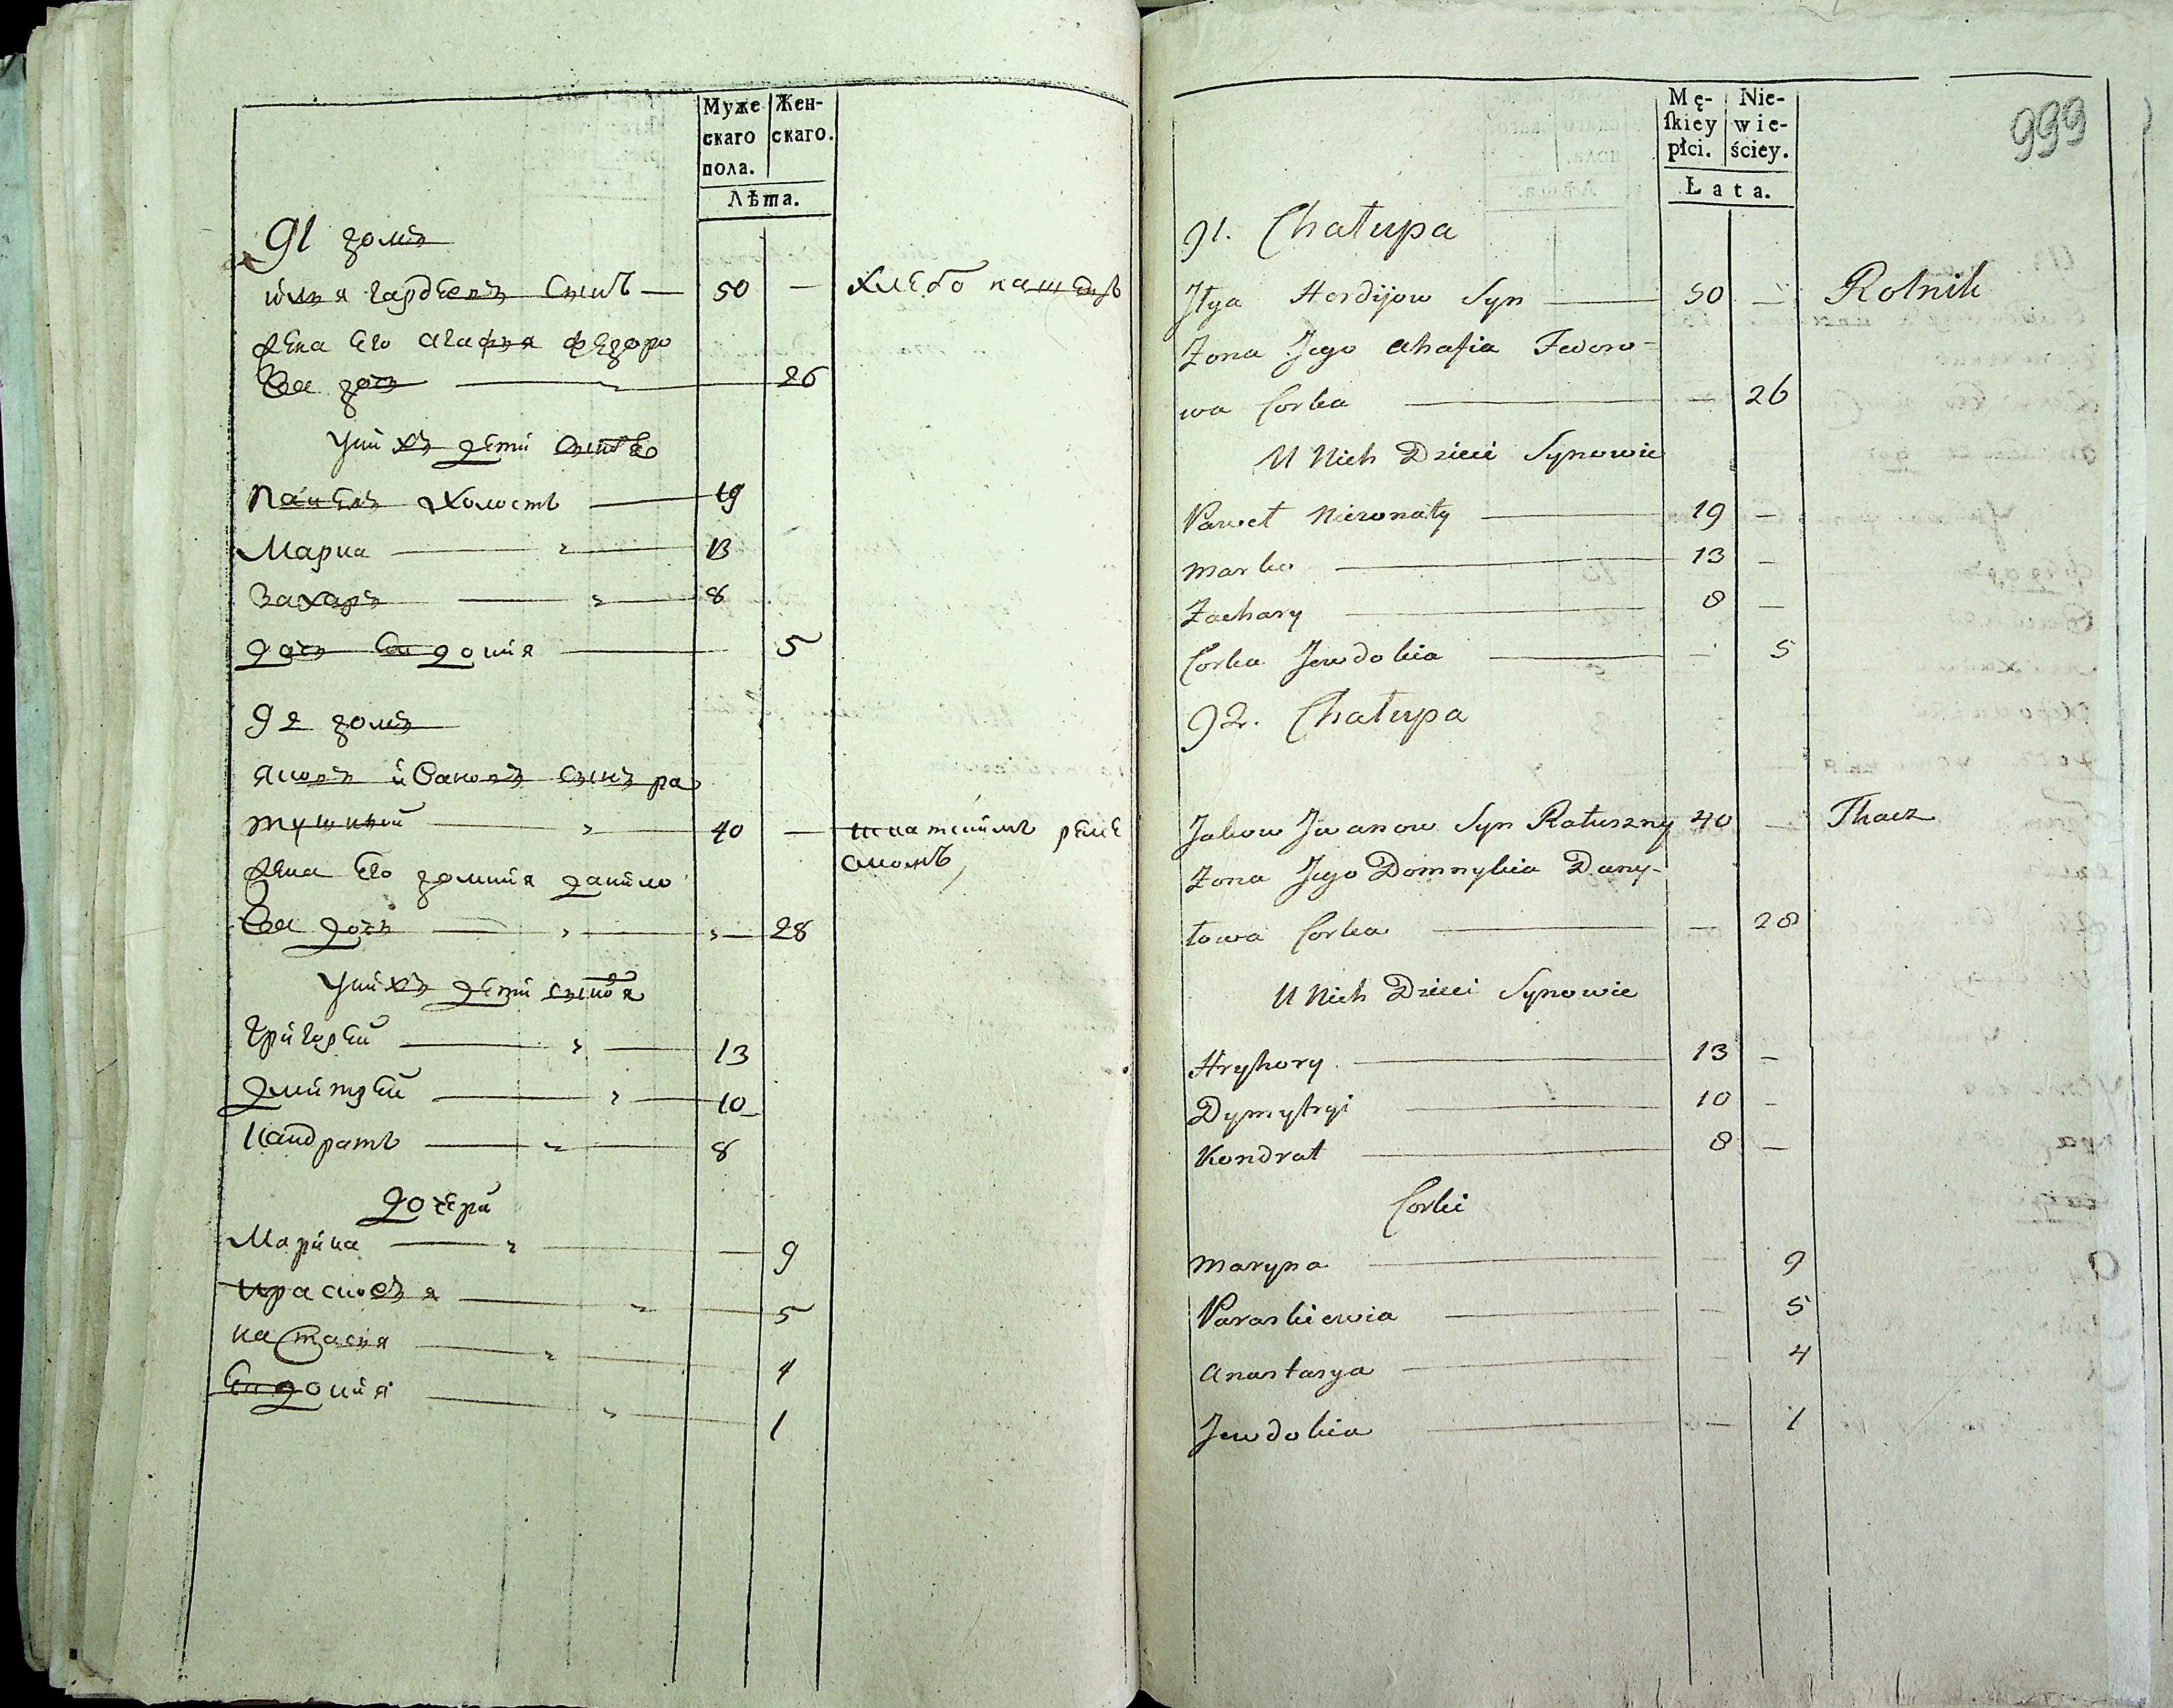 Муже
скаго
пола.
Жен-
скаго.
Лѣта.
91 домъ
илья гардѣевъ сынъ — 50 — хлебопашецъ
жена его агафья федоро
ва дочь — 26
у них дети
павелъ холостъ — 19
Марка — 13
Захаръ — 8
дочь евдокия — 5
92 домъ
яковъ ивановъ сынъ ра
тушный — 40 — ткатскимъ реме
сломъ
жена его домния данило
ва дочь — 28
у них дети
григорей — 13
дмитрей — 10
кандратъ — 8
дочери
Марина — 9
прасковья — 5
настасия — 4
евдокия — 1
999
Mę-
ſkiey
płci.
Nie-
wie-
ściey.
Lata.
91. Chałupa
Jłya Hordijow Syn — 50 — Rolnik
Zona Jego Ahafia Fedoro-
wa Corka — 26
U Nich Dzieci Synowie
Paweł Niezonaty — 19 —
Marko — 13 —
Zachary — 8 —
Corka Jewdokia — 5
92. Chałupa
Jakow Jwanow Syn Ratuszny 40 — Tkacz
Zona Jego Domnykia Dany-
łowa Corka — 28
U Nich Dzieci Synowie
Hryhory — 13 —
Dymytryi — 10 —
Kondrat — 8 —
Corki
Maryna — 9
Paraskiewia — 5
Anastasya — 4
Jewdokia — 1